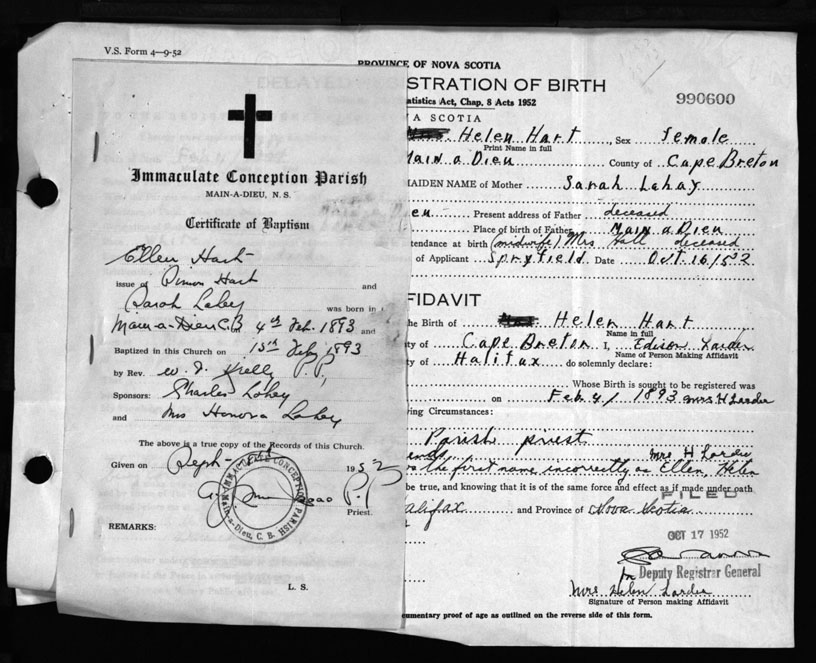 V.S. Form 4—9-52
Immaculate Conception Parish
MAIN-A-DIEU, N. S.
Certificate of Baptism
Ellen Hart
issue of Simon Hart and
Sarah Lahey
was born in
Main-a-Dieu C.B 4th Feb. 1893 and
Baptized in this Church on 15th Feb 1893
by Rev. P.P.
Sponsors: Charles Lahey
and Mrs Honora Lahey
The above is a true copy of the Records of this Church.
Given on Sept 1952
P.P.
Priest.
IMMACULATE CONCEPTION PARISH
Main-a-Dieu, C. B.
REMARKS:
L. S.
PROVINCE OF NOVA SCOTIA
STRATION OF BIRTH
atistics Act, Chap. 8 Acts 1952
990600
A SCOTIA
Helen Hart, Sex Female
Print Name in full
Main a Dieu County of Cape Breton
MAIDEN NAME of Mother Sarah Lahay
eu Present address of Father deceased
Place of birth of Father Main a Dieu
ttendance at birth (midwife) Mrs Hall deceased
of Applicant Spryfield Date Oct. 16/52
FIDAVIT
the Birth of Helen Hart
Name in full
ty of Cape Breton I, Edison Larder
Name of Person Making Affidavit
ty of Halifax do solemnly declare:
Whose Birth is sought to be registered was
on Feb 4/ 1893 Mrs H Larder
ing Circumstances:
Parish priest
Mrs H Larder
the first name incorrectly as Ellen, Helen
be true, and knowing that it is of the same force and effect as if made under oath
FILED
alifax and Province of Nova Scotia
OCT 17 1952
Deputy Registrar General
Mrs Helen Larder
Signature of Person making Affidavit
umentary proof of age as outlined on the reverse side of this form.